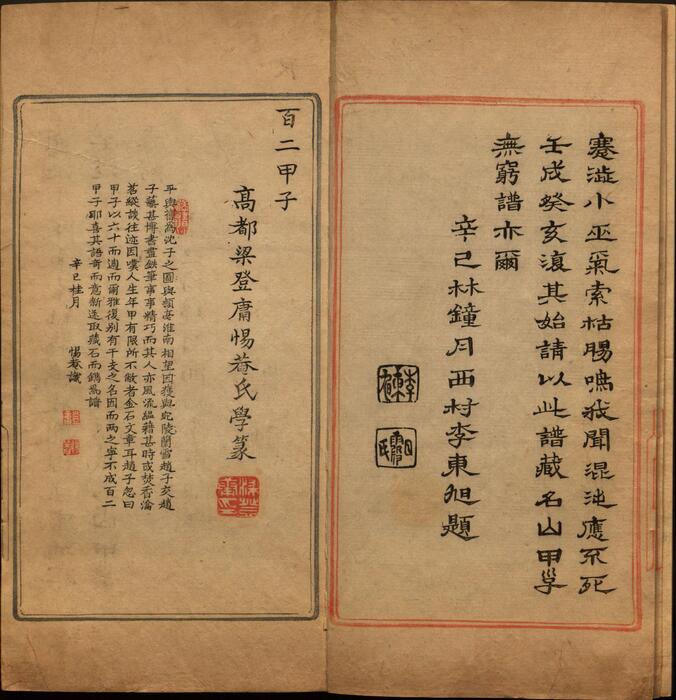 蹇澁小巫氣索枯腸鳴我聞混沌應不死
壬戌癸亥復其始請以此譜藏名山甲子
無窮譜亦爾
辛巳林鐘月西村李東旭題
百二甲子
高都梁登庸惕菴氏學篆
平輿舊為沈子之國與頓毫淮南相望因獲與宛陵蘭雪趙子交趙
子藝甚博書畫鉄筆事事精巧而其人亦風流縕藉甚時或焚香瀹
茗縱談往迹因嘆人生年甲有限所不敝者金石文章耳趙子忽曰
甲子以六十而週而爾雅復別有干支之名因而兩之寧不成百二
甲子耶喜其語奇而意新遂取藏石而鐫為譜
辛巳桂月
惕菴識